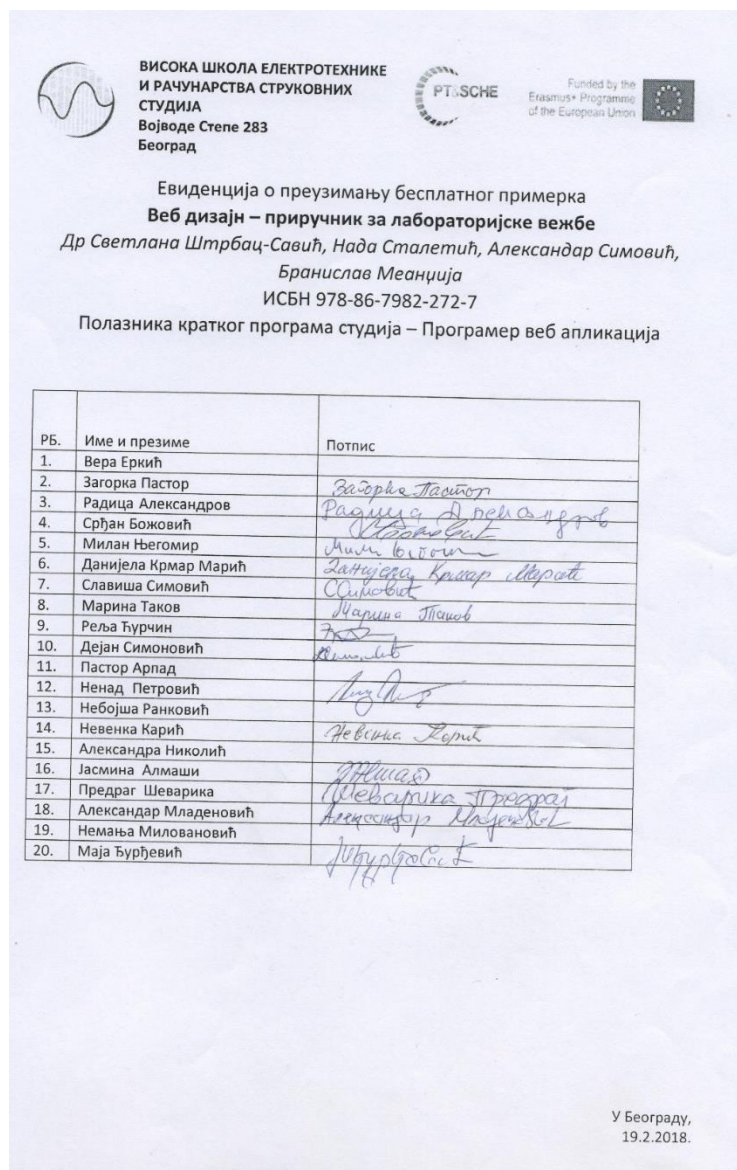 ВИСОКА ШКОЛА ЕЛЕКТРОТЕХНИКЕ
И РАЧУНАРСТВА СТРУКОВНИХ
СТУДИЈА
Војводе Степе 283
Београд
PT&SCHE
Funded by the
Erasmus+ Programme
of the European Union
Евиденција о преузимању бесплатног примерка
Веб дизајн – приручник за лабораторијске вежбе
Др Светлана Штрбац-Савић, Нада Сталетић, Александар Симовић,
Бранислав Меанџија
ИСБН 978-86-7982-272-7
Полазника кратког програма студија – Програмер веб апликација
РБ. Име и презиме Потпис
1. Вера Еркић
2. Загорка Пастор Загорка Пастор
3. Радица Александров Радица Александров
4. Срђан Божовић
5. Милан Његомир
6. Данијела Крмар Марић Данијела Крмар Марић
7. Славиша Симовић ССимовић
8. Марина Таков Марина Таков
9. Реља Ћурчин
10. Дејан Симоновић
11. Пастор Арпад
12. Ненад Петровић
13. Небојша Ранковић
14. Невенка Карић Невенка Карић
15. Александра Николић
16. Јасмина Алмаши
17. Предраг Шеварика Шеварика Предраг
18. Александар Младеновић Александар Младеновић
19. Немања Миловановић
20. Маја Ђурђевић
У Београду,
19.2.2018.